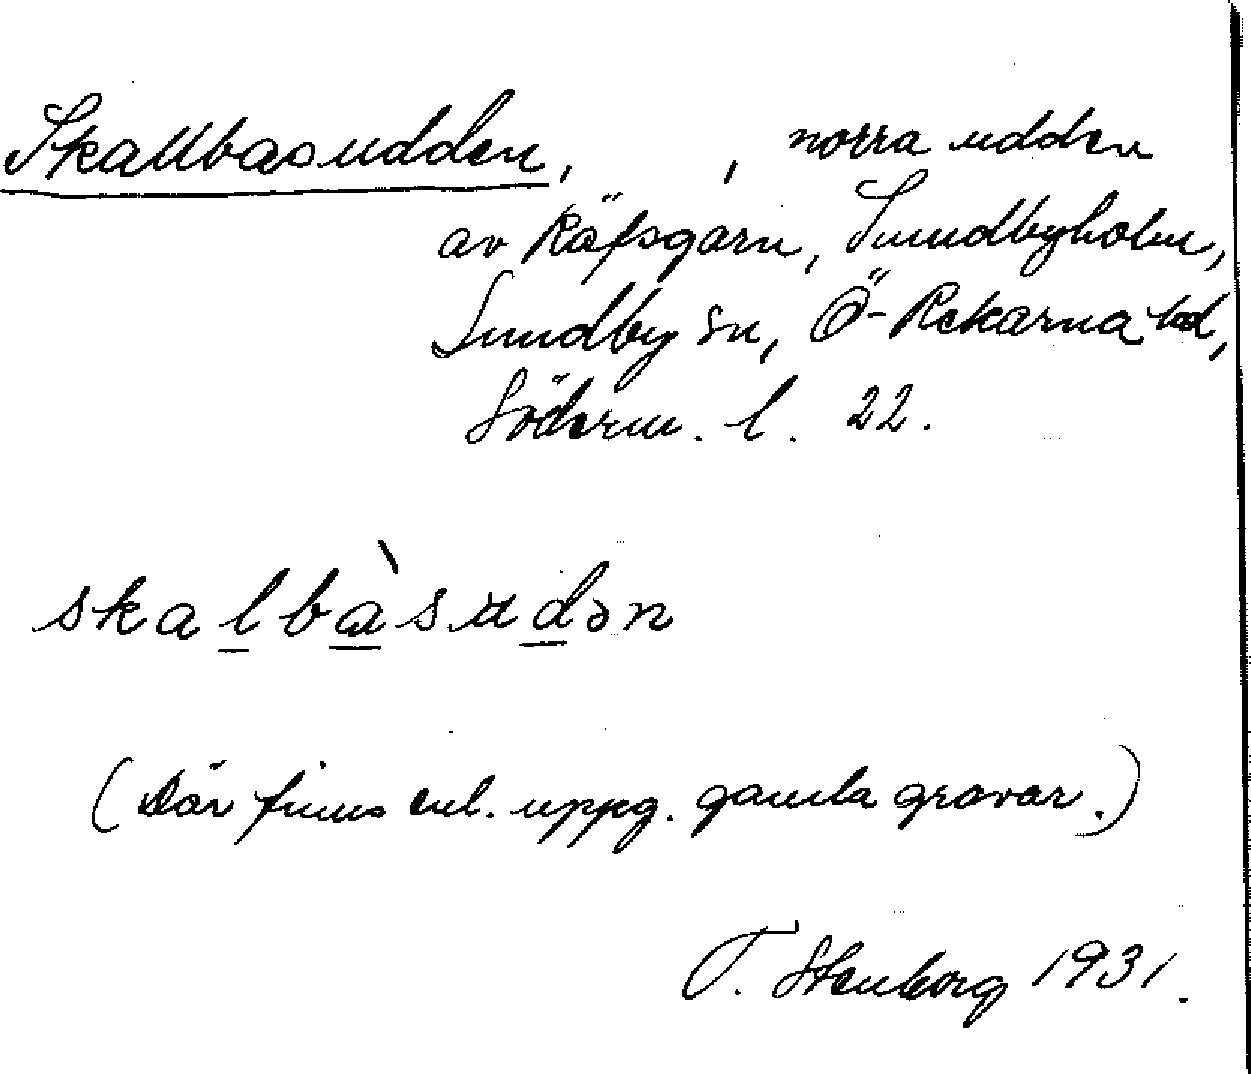 Skallbasudden,       , norra udden
av Räfsgarn, Sundbyholm,
Sundby sn, Ö-Rekarna hd,
Söderm. l. 22.
skalbàsudən
(Där finns enl. uppg. gamla gravar.)
T. Stenborg 1931.